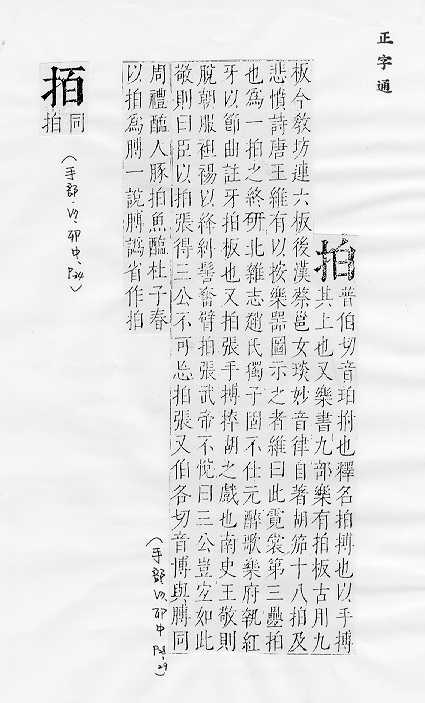 正字通
拍
普伯切音珀拊也釋名拍搏也以手搏
其上也又樂書九部樂有拍板古用九
板今敎坊連六板後漢蔡邕女琰妙音律自著胡笳十八拍及
悲憤詩唐王維有以按樂器圖示之者維曰此霓裳第三疊拍
也爲一拍之終研北雜志趙氏獨子固不仕元醉歌樂府執紅
牙以節曲註牙拍板也又拍張手搏捽胡之戲也南史王敬則
脫朝服袒裼以絳糾髻奮臂拍張武帝不悅曰三公豈宜如此
敬則曰臣以拍張得三公不可忘拍張又伯各切音博與膊同
周禮醢人豚拍魚醢杜子春
以拍爲膊一說膊譌省作拍
（手部 卯中
同
拍
（手部 卯中